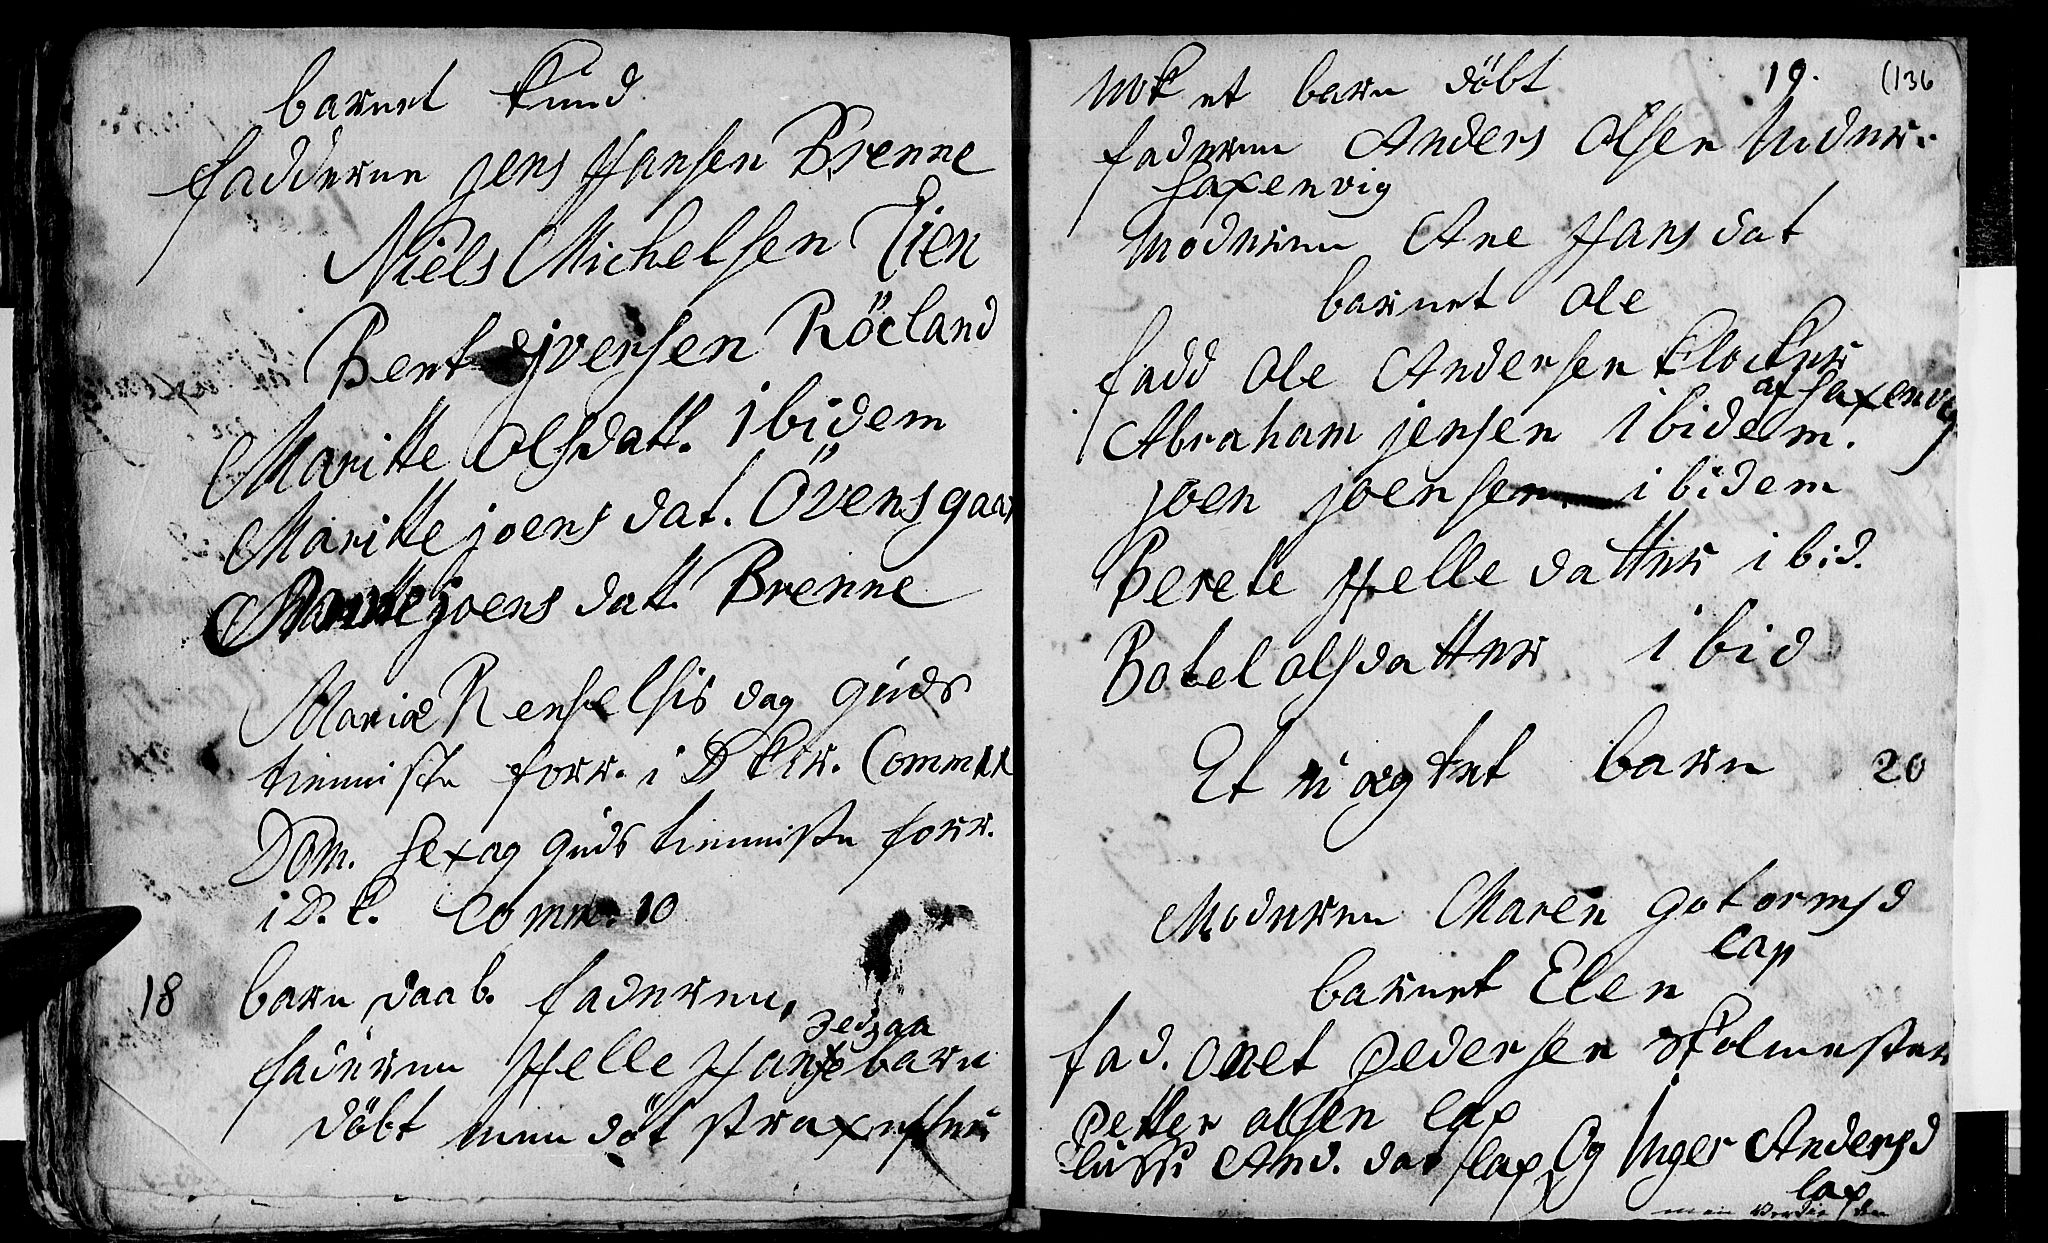 barnet Knud
fadderne Jens Hansen Brenne
Niels Michelsen Lien
Bent Iversen Röeland
Maritte Olsdatt. Ibidem
Maritte joens dat. Övensgaar
Maritte joens datt. Brenne
Mariæ Renselsis dag guds
tienniste forr. i D Kir. Comm 11
Dom. Sexag guds tienniste forr.
i D. K. Comm. 10
18 barn daab. faderen,
zedzaa
faderen Helle Hans barn
döbt men döt strax efter
nok et barn döbt 19. (136
faderen Anders Olsen Neder-
Saxenvig
Moderen Ane Hans dat
barnet Ole
fadd Ole Andersen Klocker
af Saxenvig
Abraham jensen Ibidem.
joen joensen. ibidem
Berete Helle datter ibid.
Botel olsdatter Ibid
Et uægtet barn 20
Moderen Maren gotormsd
Lap
barnet Elen
fad. Onet Pedersen Skolmester
Petter olsen Lap
And. dat lap Og Inger Andersd
Lap